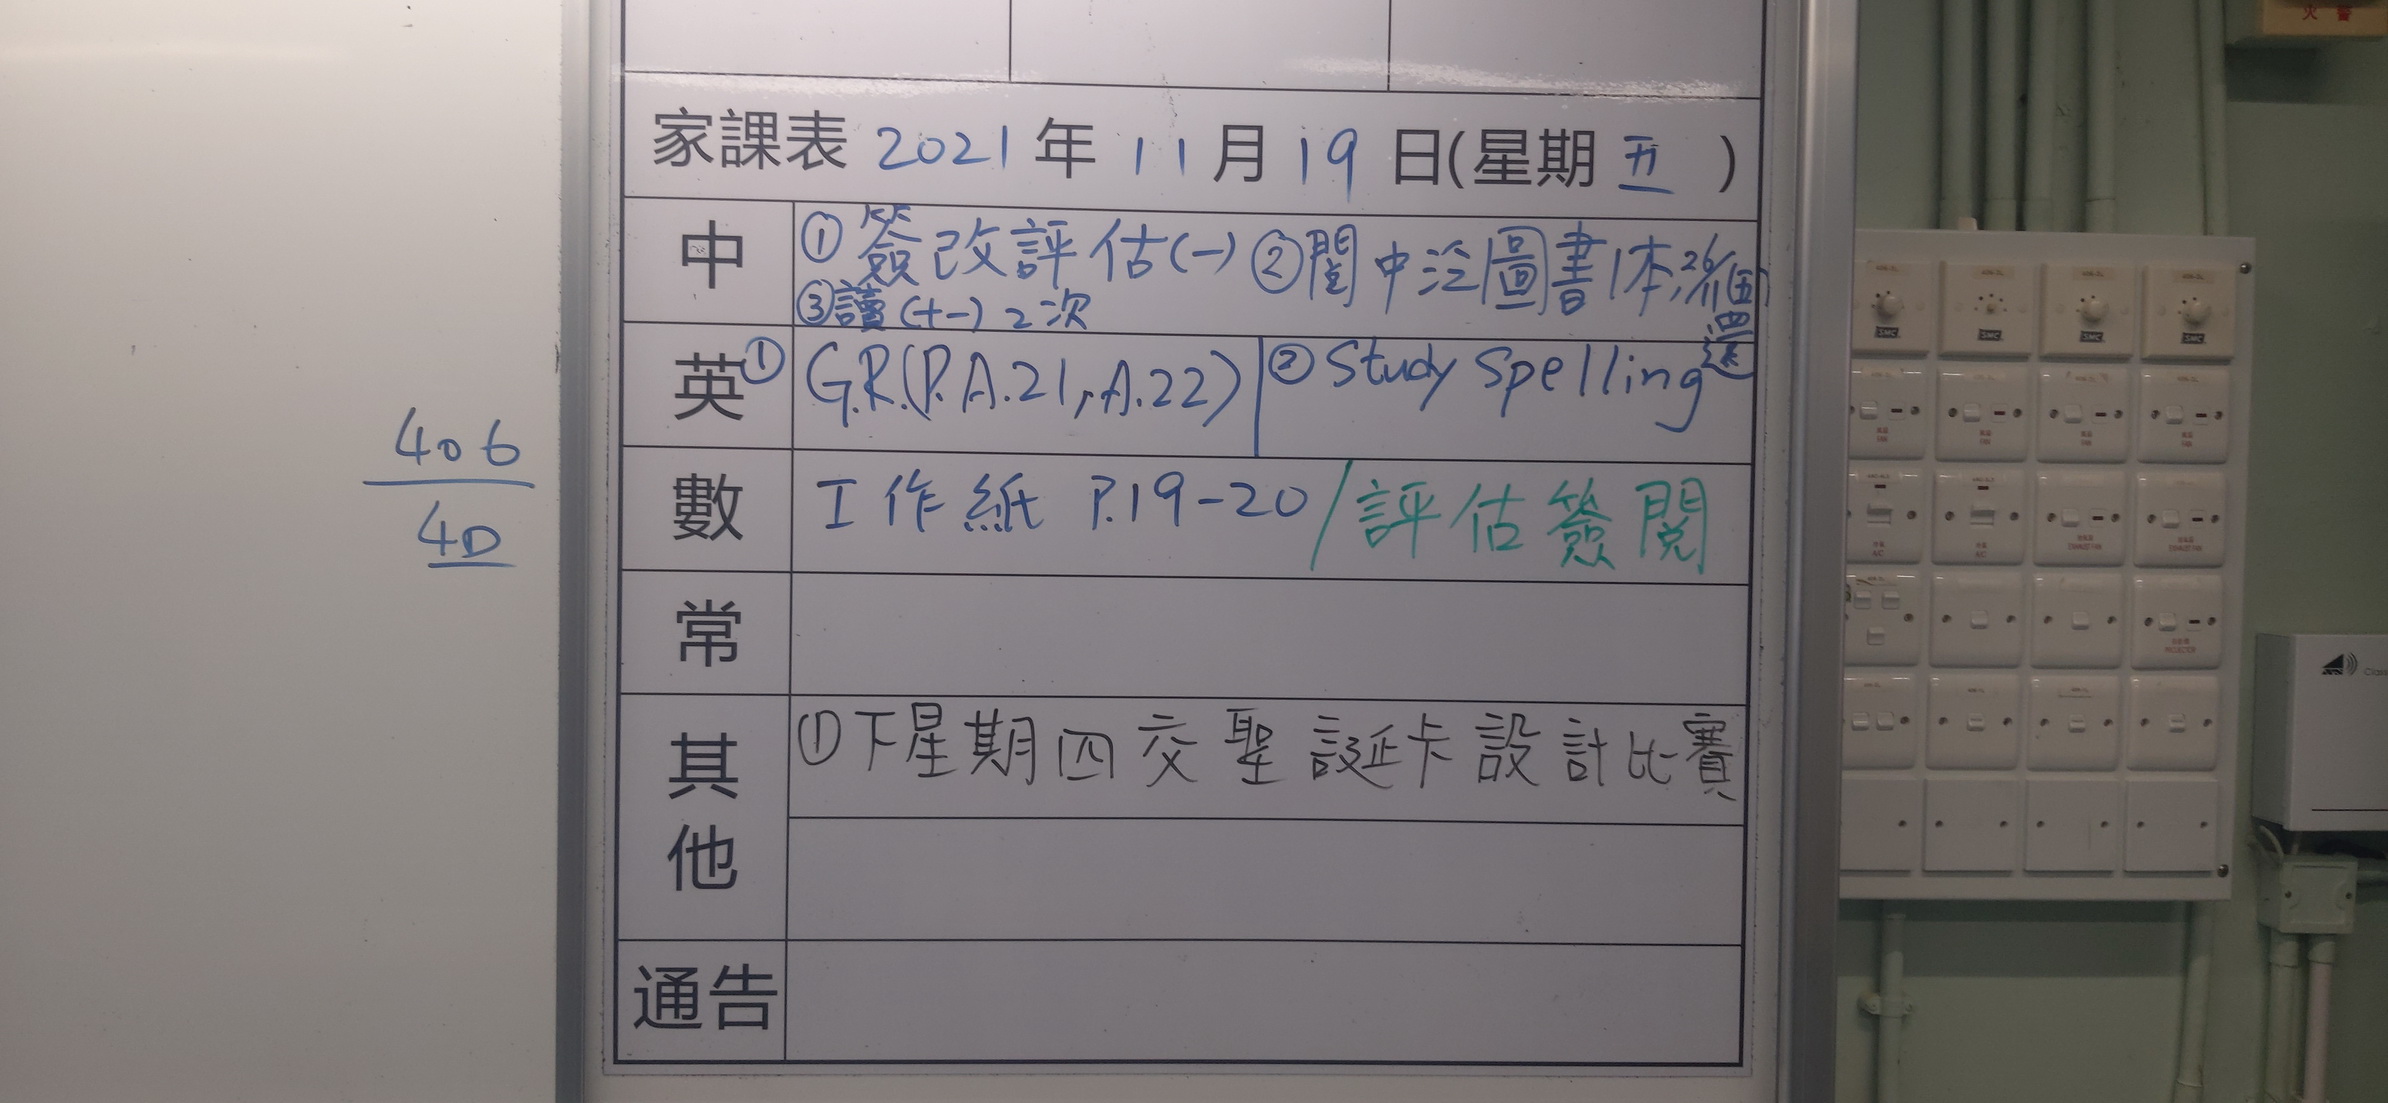 火 警
家課表 2021 年 11 月 19 日(星期 五 )
中 ①簽改評估(一) ②閱中泛圖書1本,26/11(五)還
③讀(十一) 2次
英 ① G.R.(P.A.21,A.22) ② Study Spelling
數 工作紙 P.19-20 / 評估簽閱
常
其他 ①下星期四交聖誕卡設計比賽
通告
406
4D
SMC SMC SMC SMC